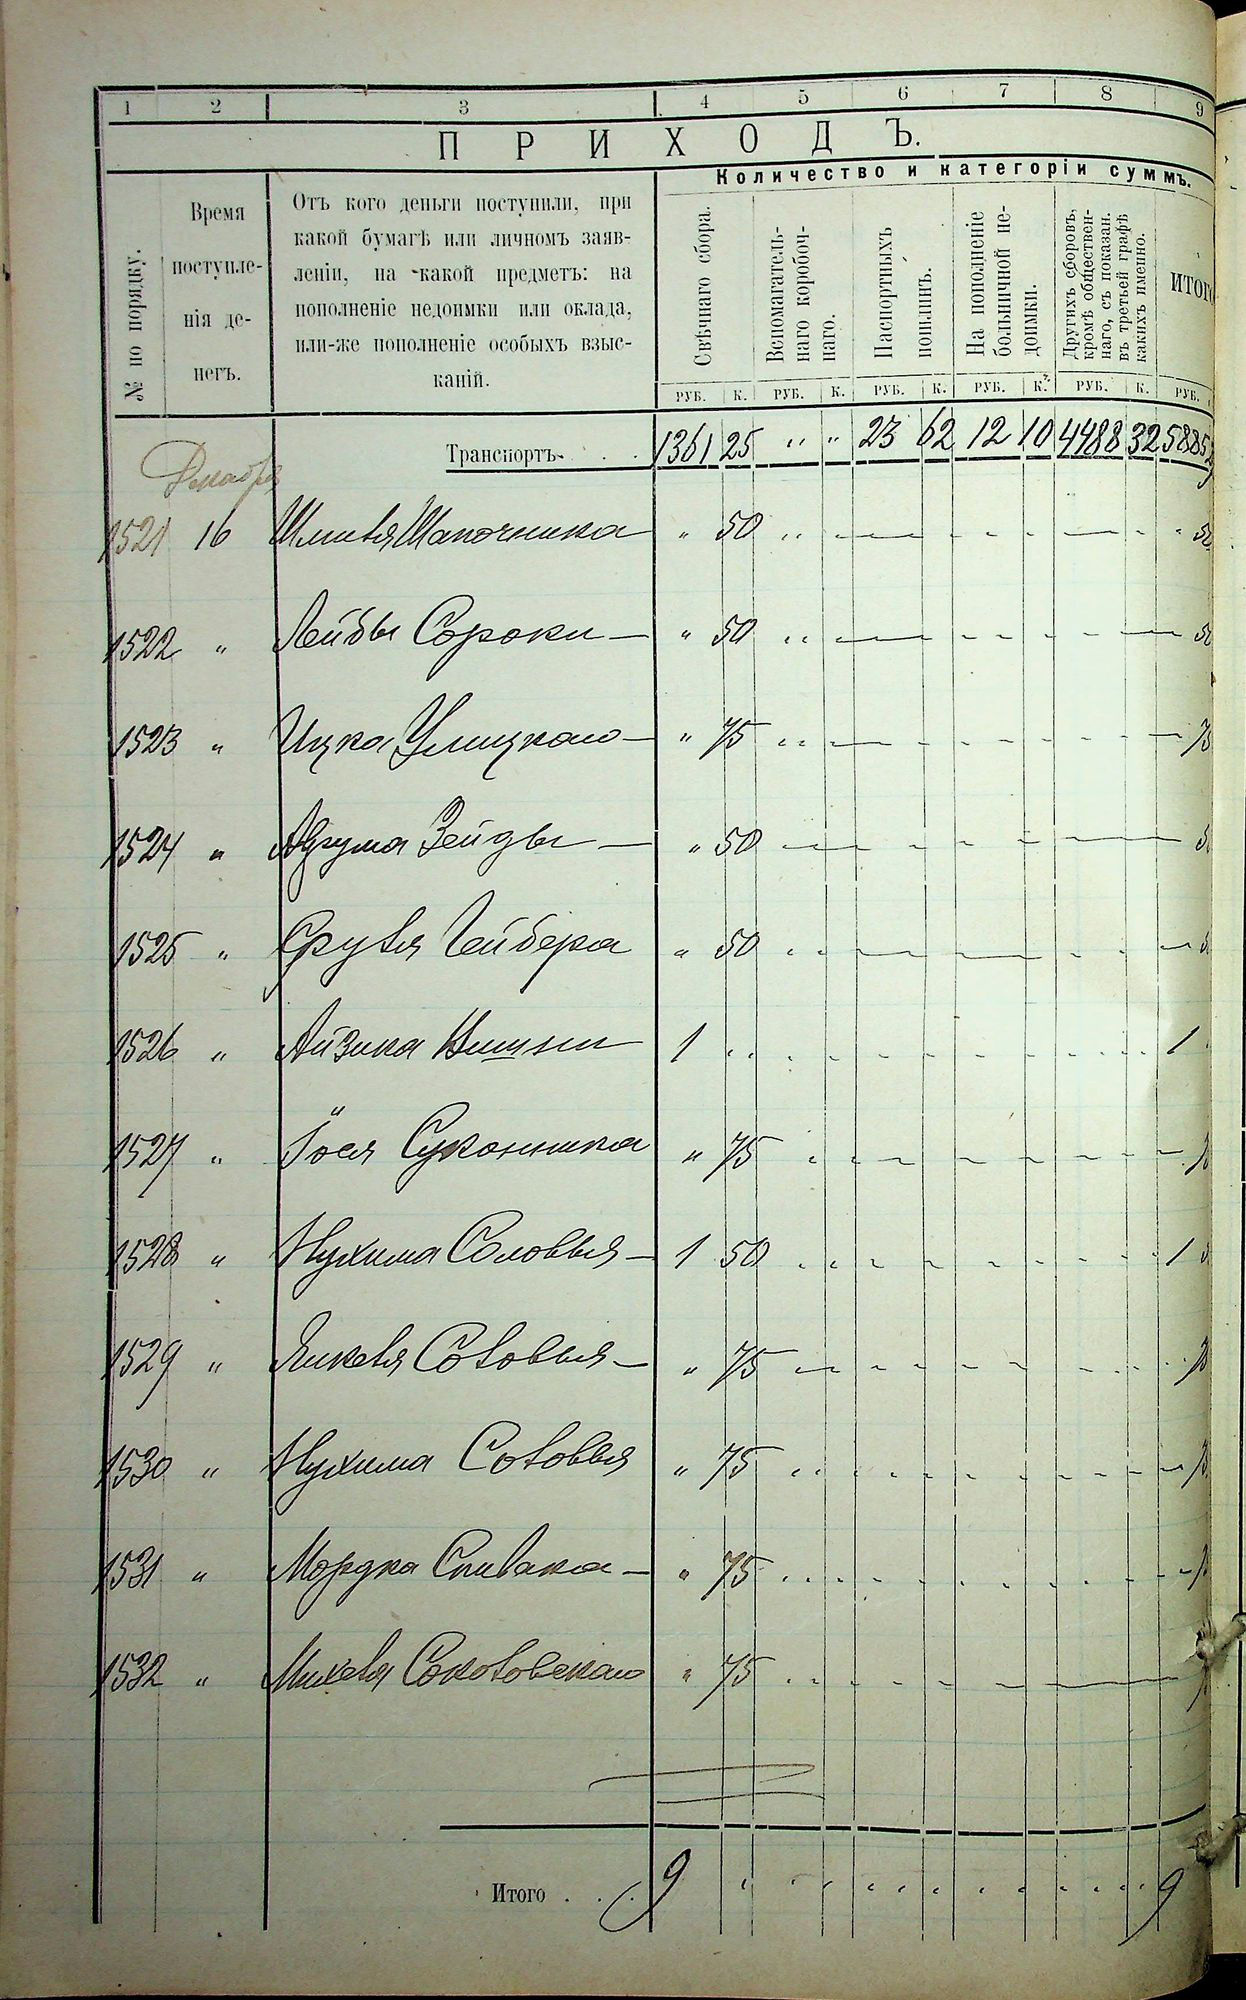 1 2 3 4 5 6 7 8 9
ПРИХОДЪ.
Количество и категоріи суммъ.
№ по порядку.
Время
поступле-
нія де-
негъ.
Отъ кого деньги поступили, при
какой бумагѣ или личномъ заяв-
леніи, на какой предметъ: на
пополненіе недоимки или оклада,
или-же пополненіе особыхъ взыс-
каній.
Свѣчнаго сбора.
Вспомагатель-
наго коробоч-
наго.
Паспортныхъ
пошлинъ.
На пополненіе
больничной не-
доимки.
Другихъ сборовъ,
кромѣ обществен-
наго, съ показан.
въ третьей графѣ
какихъ именно.
ИТОГО
РУБ. К. РУБ. К. РУБ. К. РУБ. К. РУБ. К. РУБ.
Транспортъ . . 1361 25 " " 23 62 12 10 4488 32 5885
Декабря
1521 16 Шмиля Шапочника " 50 50
1522 " Лейбы Сороки — " 50 50
1523 " Ицка Улицкаго — " 75 75
1524 " Зейды — " 50 50
1525 " Сруля " 50
1526 " Айзика 1 1
1527 " Іося Суконника " 75 75
1528 " Нухима Соловья — 1 50 1
1529 " Янкеля Соловья — " 75 75
1530 " Нухима Соловья " 75 75
1531 " Мордка Спивака — " 75
1532 " Михеля Соколовскаго " 75
Итого . . . 9 9